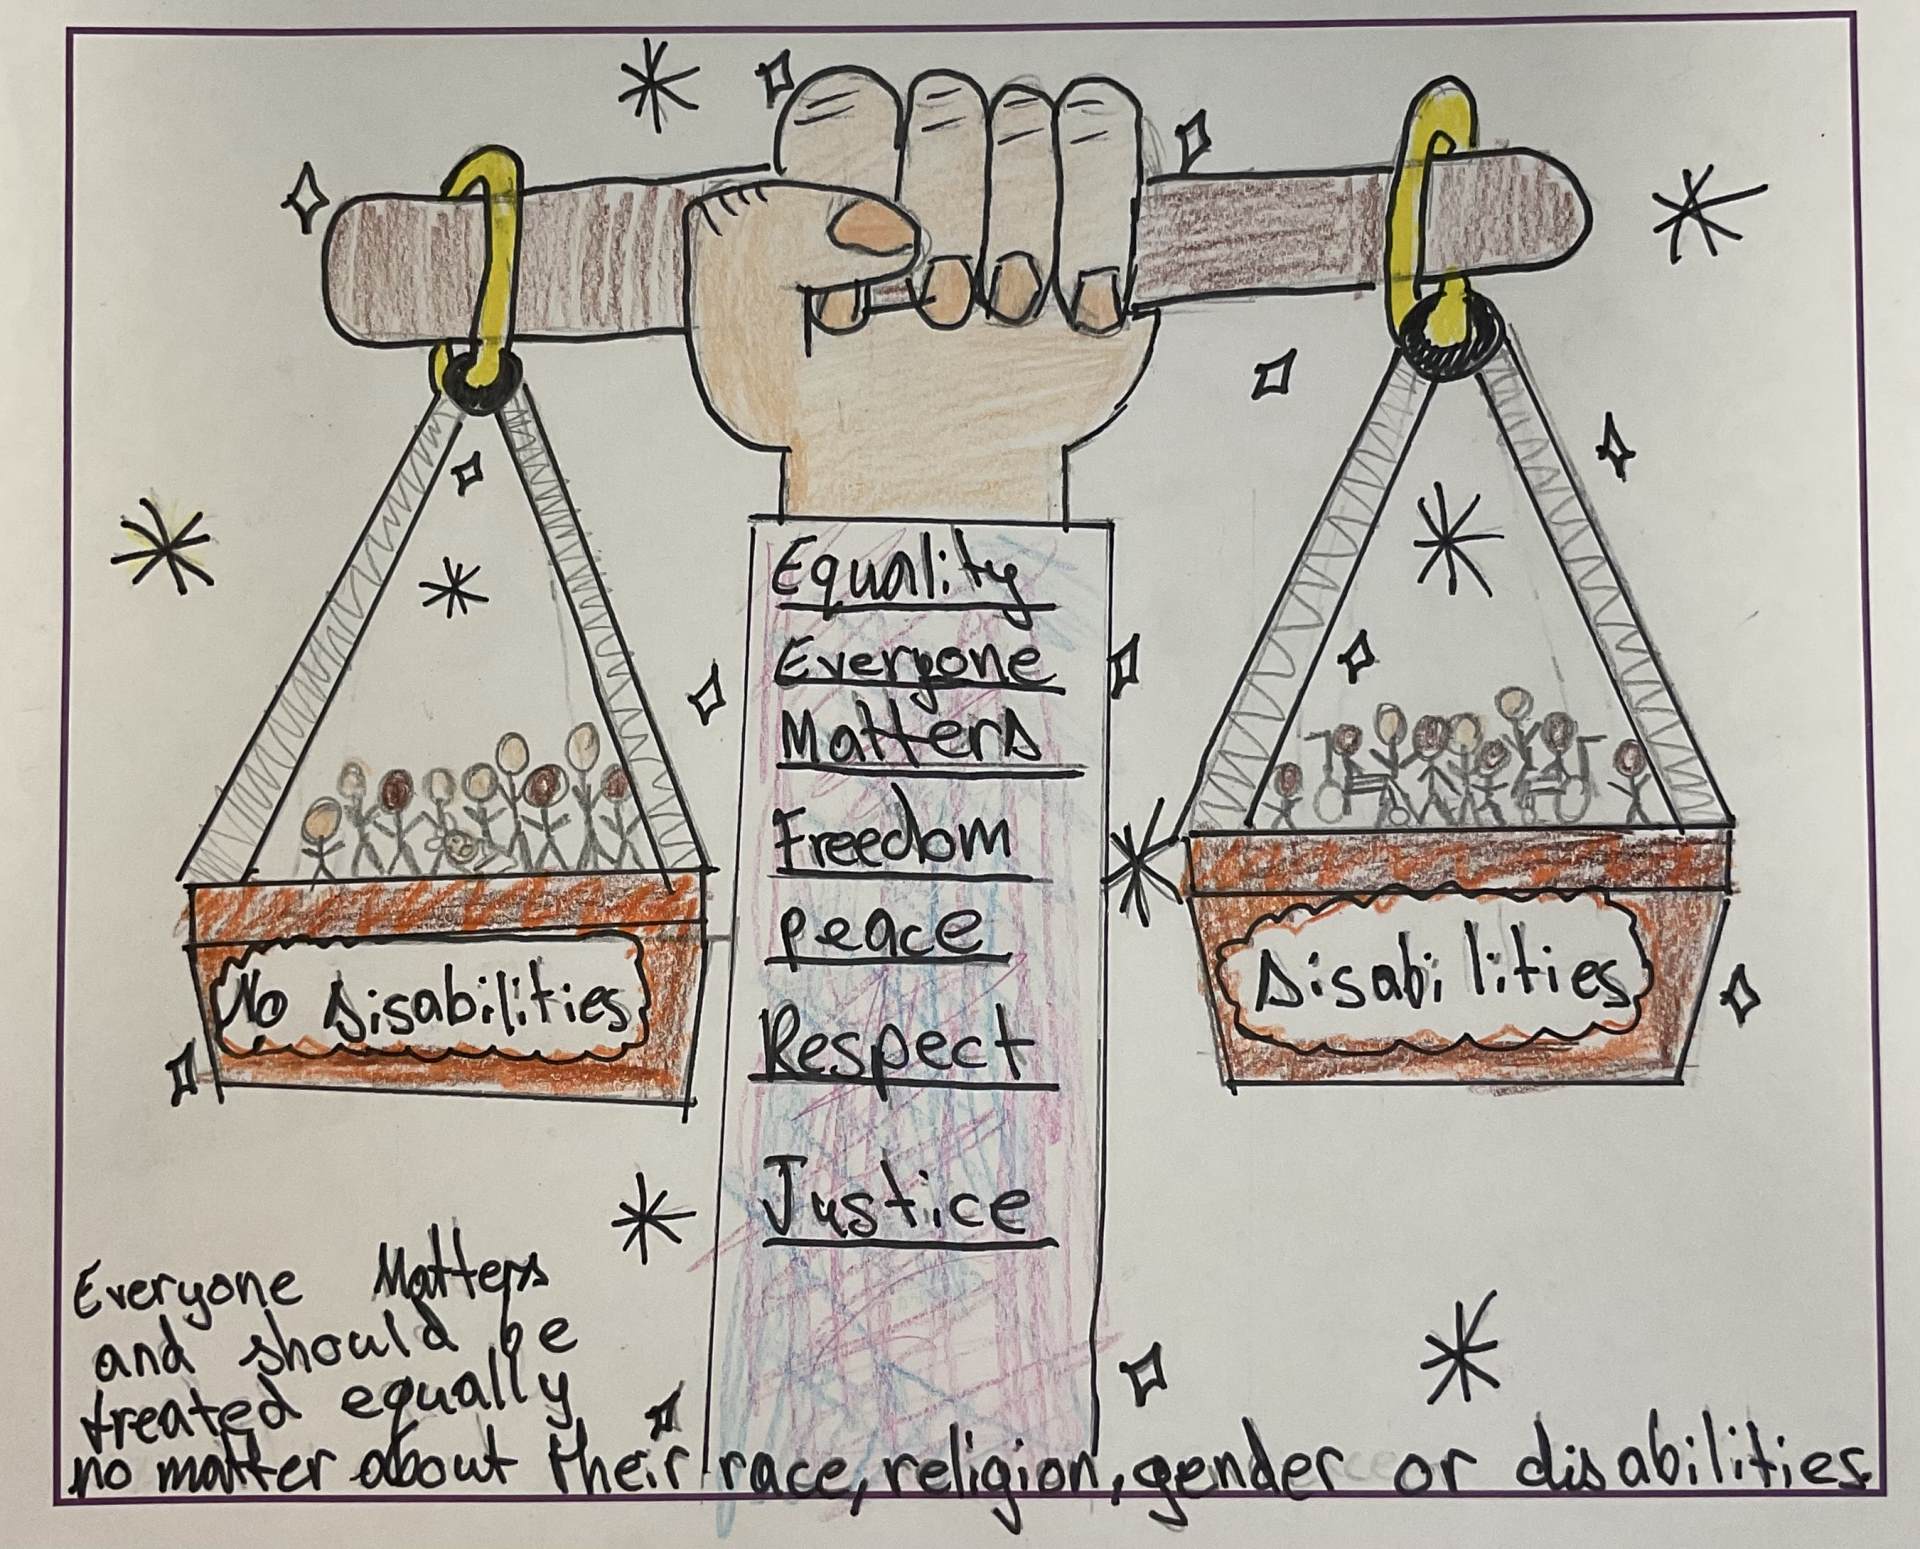 Equality
Everyone
Matters
Freedom
peace
Respect
Justice
No Disabilities
Disabilities
Everyone Matters
and should be
treated equally
no matter about their race, religion, gender or disabilities